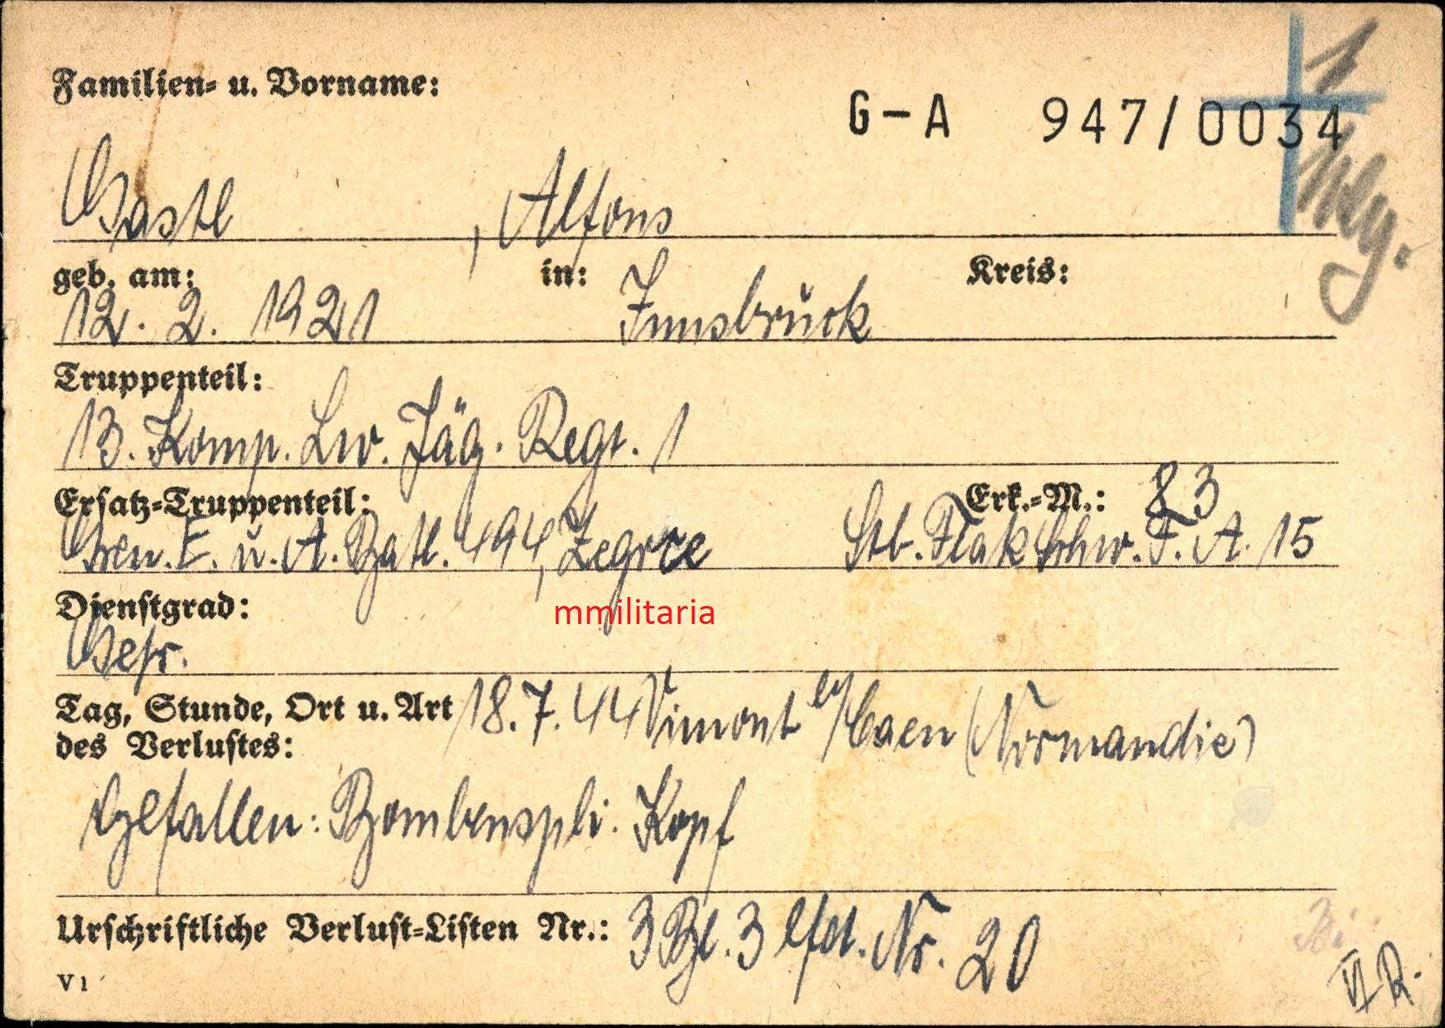 Familien- u. Vorname:
G-A 947/0034
Gastl, Alfons
geb. am: in: Kreis:
12. 2. 1921 Innsbruck
Truppenteil:
13. Komp. Lw. Jäg. Regt. 1
Ersatz-Truppenteil: Erk.-M.: 83
Gren. E. u. A. Batl. 494, Zegrze Stb. Flak Schw. F. A. 15
Dienstgrad:
mmilitaria
Gefr.
Tag, Stunde, Ort u. Art 18. 7. 44 Vimont b/Caen (Normandie)
des Verlustes:
Gefallen: Bombenspli. Kopf
Urschriftliche Verlust-Listen Nr.: 3 Bl. 3 lfd. Nr. 20
V 1